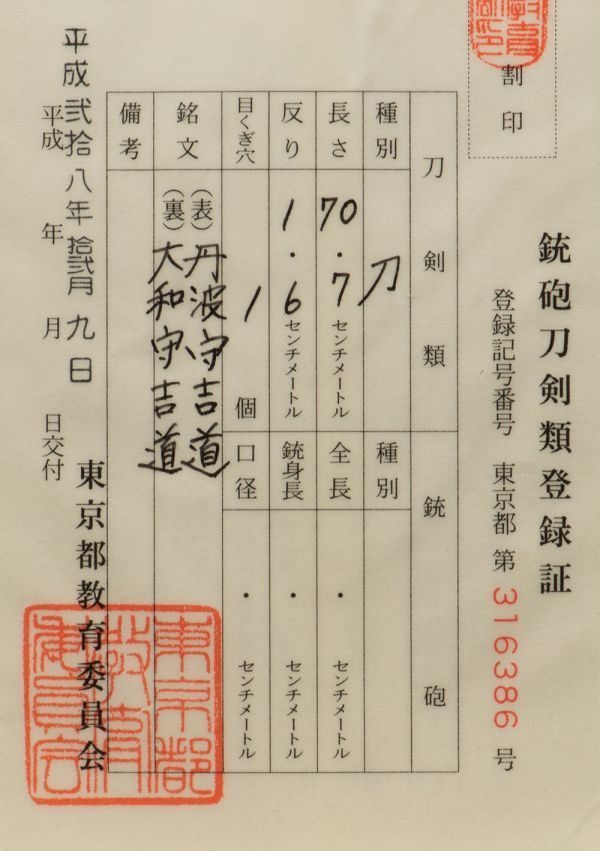 割印
銃砲刀剣類登録証
登録記号番号 東京都 第 316386 号
刀剣類
銃砲
種別
刀
種別
長さ
70.7センチメートル
全長
・センチメートル
反り
1.6センチメートル
銃身長
・センチメートル
目くぎ穴
1個
口径
・センチメートル
銘文
(表)丹波守吉道
(裏)大和守吉道
備考
平成弐拾八年拾弐月九日
平成 年 月 日交付
東京都教育委員会
東京都
教育
委員会